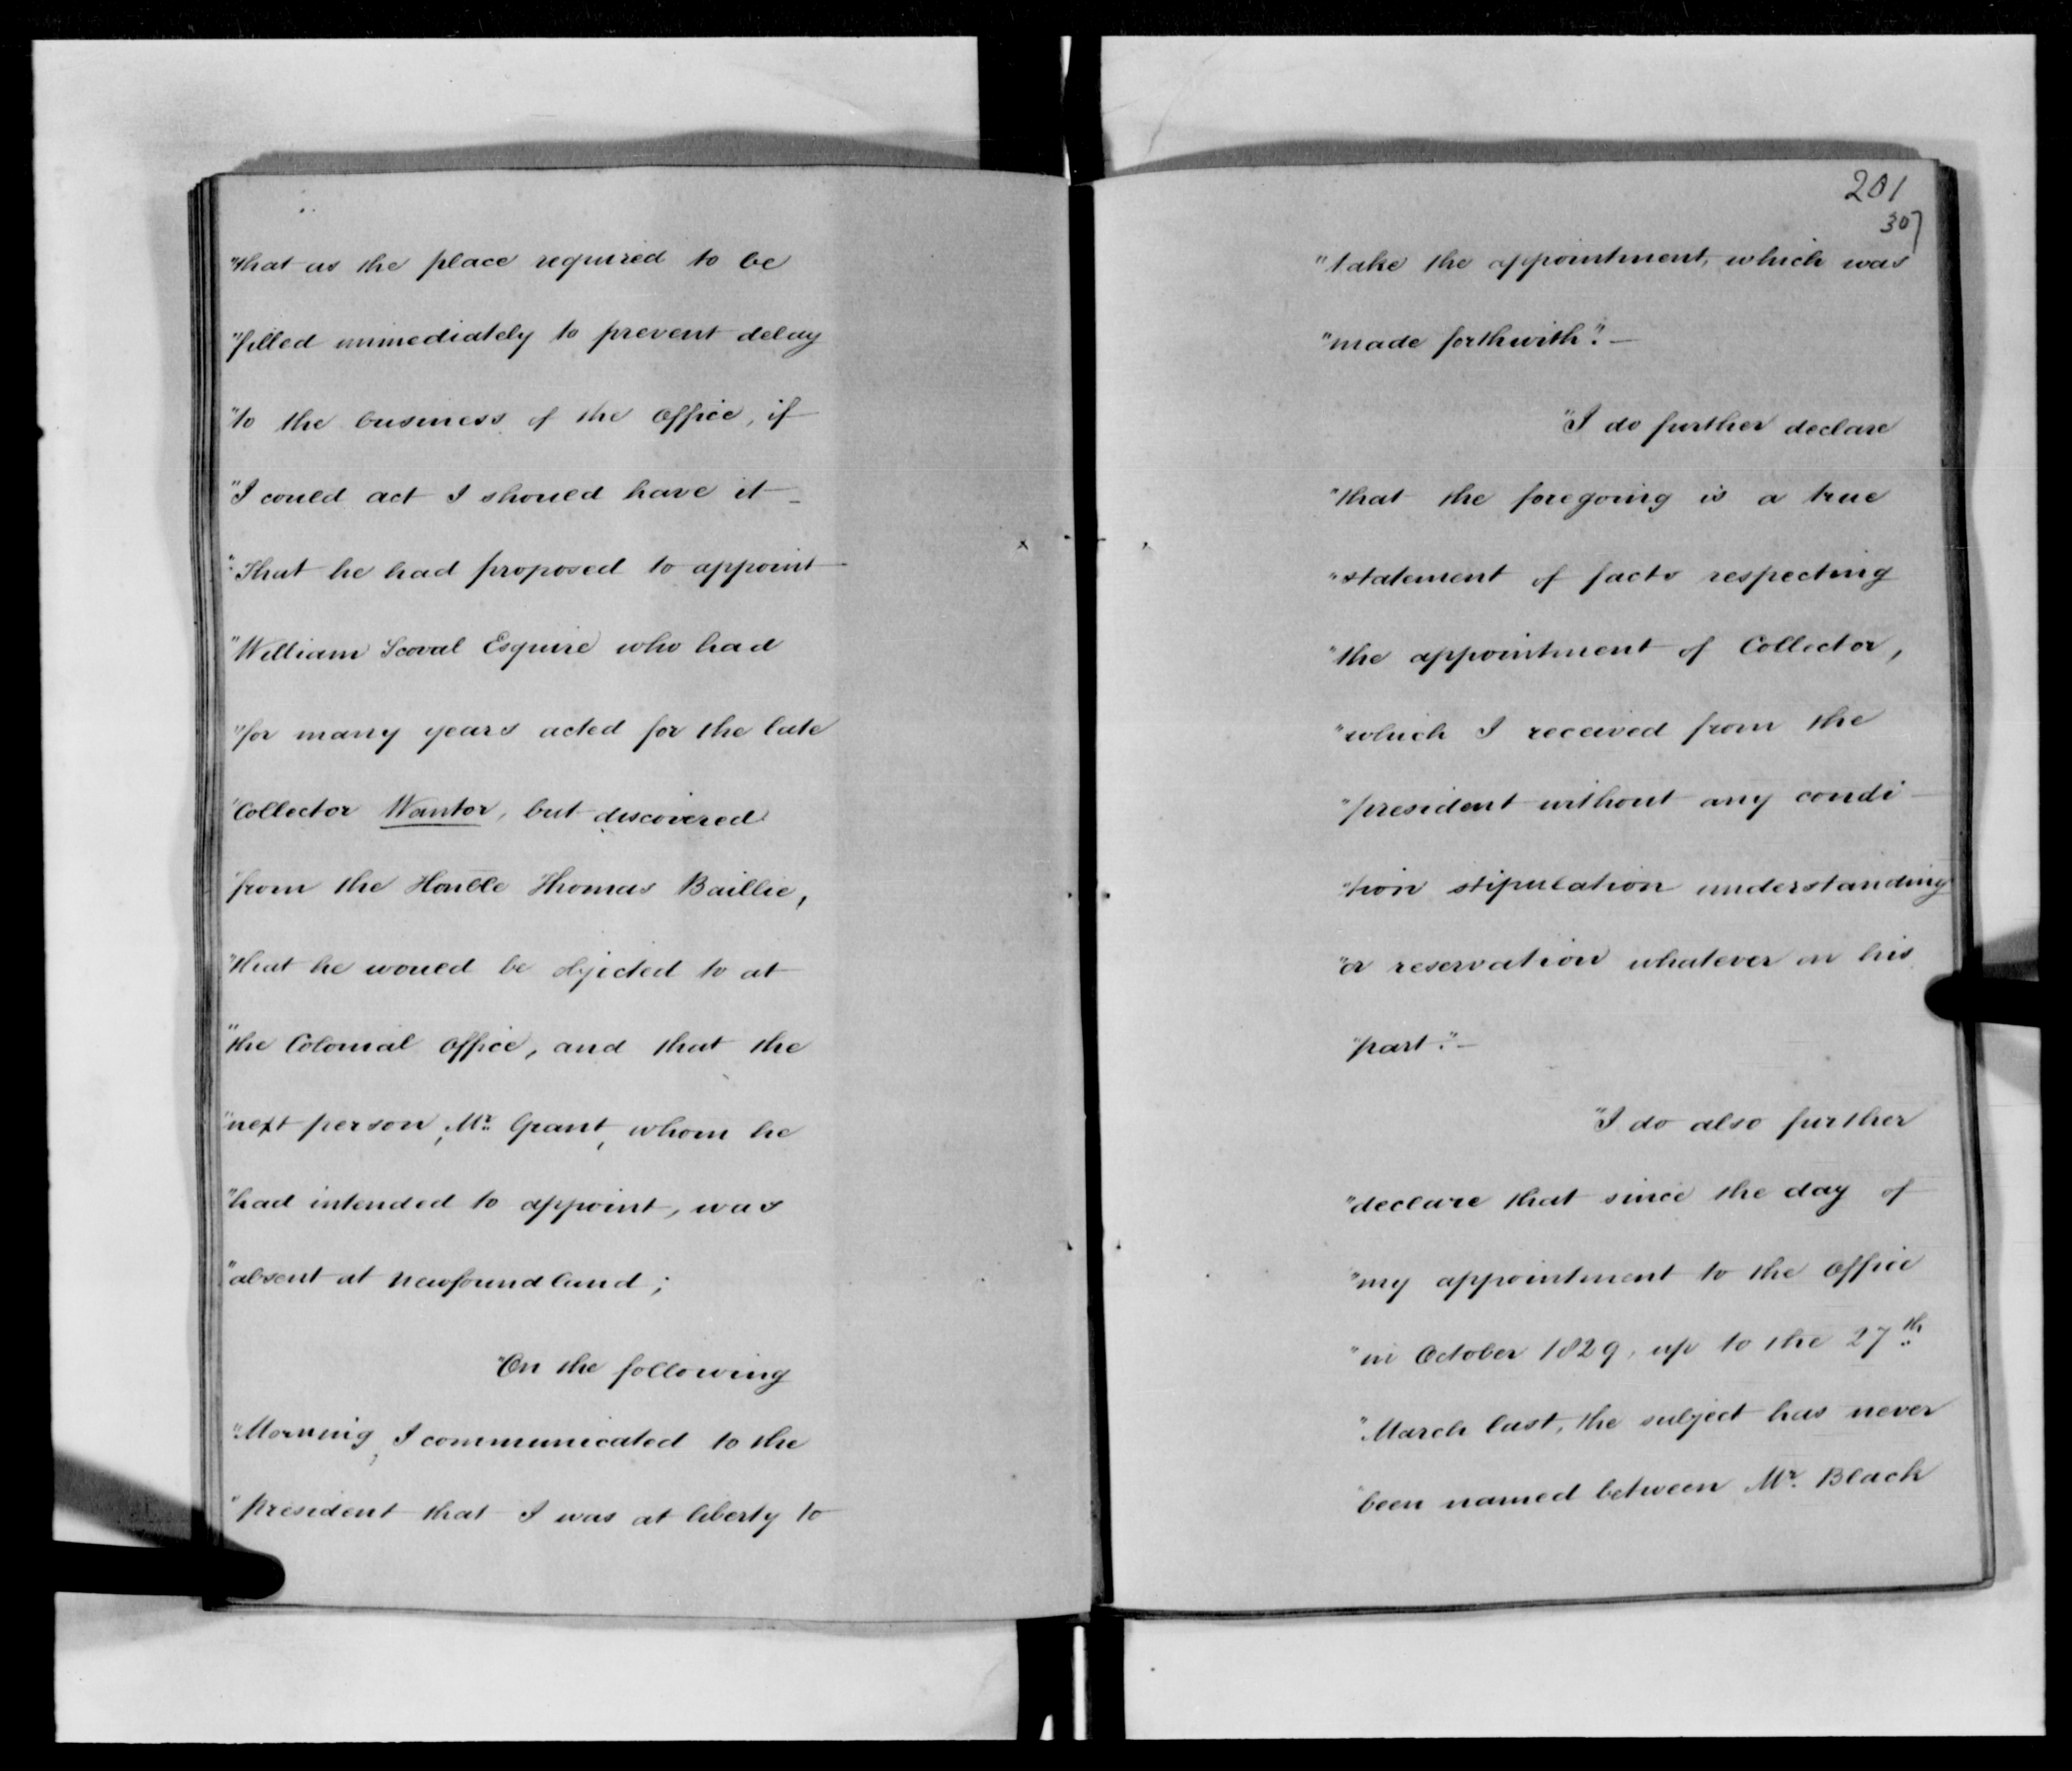 "that as the place required to be
"filled immediately to prevent delay
"to the business of the office, if
"I could act I should have it –
"That he had proposed to appoint
"William Scoval Esquire who had
"for many years acted for the late
"Collector Wanton, but discovered
"from the Honble Thomas Baillie,
"that he would be objected to at
"the Colonial Office, and that the
"next person, Mr. Grant, whom he
"had intended to appoint, was
"absent at Newfoundland;
"On the following
"Morning, I communicated to the
"president that I was at liberty to
201
307
"take the appointment, which was
"made forthwith". –
"I do further declare
"that the foregoing is a true
"statement of facts respecting
"the appointment of Collector,
"which I received from the
"president without any condi-
"tion stipulation understanding
"or reservation whatever on his
"part." –
"I do also further
"declare that since the day of
"my appointment to the office
"in October 1829, up to the 27th
"March last, the subject has never
"been named between Mr. Black